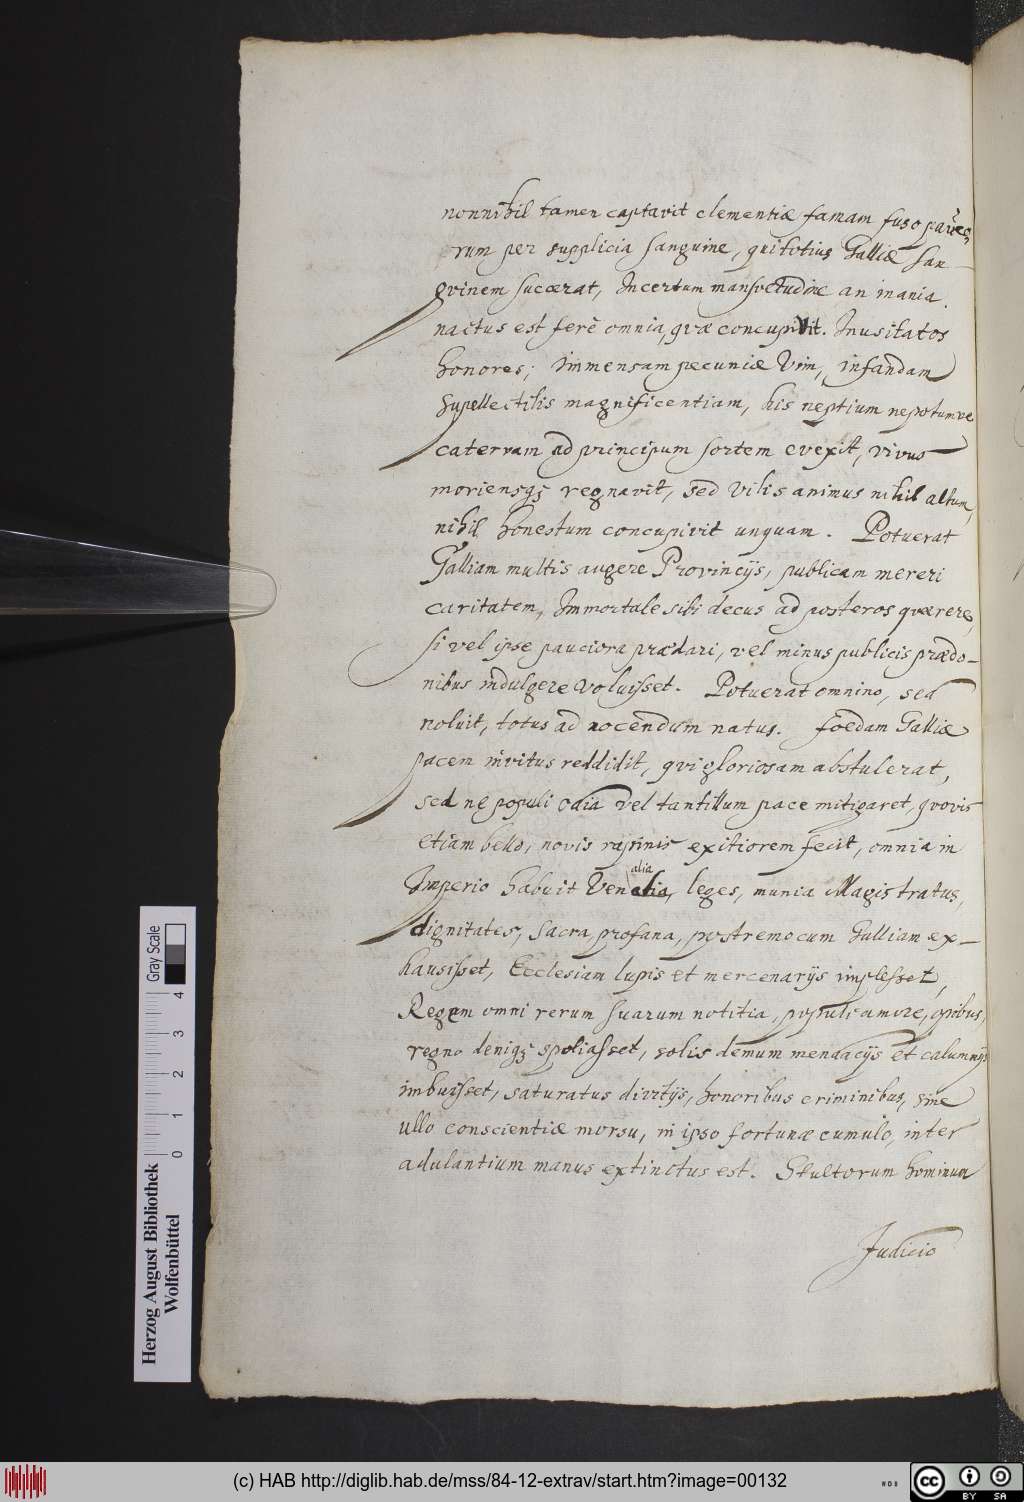 nonnihil tamen captavit clementiæ famam fuso pauco,
rum per supplicia sanguine, qui totius Galliæ san-
gvinem suxerat, Incertum mansvetudine an inania.
nactus est ferè omnia, qvæ concupivit. Inusitatos
honores; immensam pecuniæ vim, infandam
supellectilis magnificentiam, his neptium nepotumve
catervam ad principum sortem evexit, vivus
moriensq; regnavit, sed vilis animus nihil altum,
nihil honestum concupivit unquam. Potuerat
Galliam multis augere Provincijs, publicam mereri
caritatem, Immortale sibi decus ad posteros qværere,
si vel ipse pauciora prædari, vel minus publicis prædo-
nibus indulgere voluisset. Potuerat omnino, sed
noluit, totus ad nocendum natus. fœdam Galliæ
pacem invitus reddidit, qvi gloriosam abstulerat,
sed ne populi odia vel tantillum pace mitigaret, qvovis
etiam bello, novis rapinis exitiorem fecit, omnia in
Imperio habuit Venalia, alia leges, munia Magistratus,
dignitates, sacra, profana, postremo cum Galliam ex-
hausisset, Ecclesiam lupis et mercenarijs implesset,
Regem omni rerum suarum notitia, populi amore, opibus,
regno deniq; spoliasset, solis demum mendacijs et calumnijs
imbuisset, saturatus divitijs, honoribus criminibus, sine
ullo conscientiæ morsu, in ipso fortunæ cumulo, inter
adulantium manus extinctus est. Stultorum hominum
Judicio
Herzog August Bibliothek
Wolfenbüttel
0 1 2 3 4
Gray Scale
(c) HAB http://diglib.hab.de/mss/84-12-extrav/start.htm?image=00132
WDB
cc
BY SA